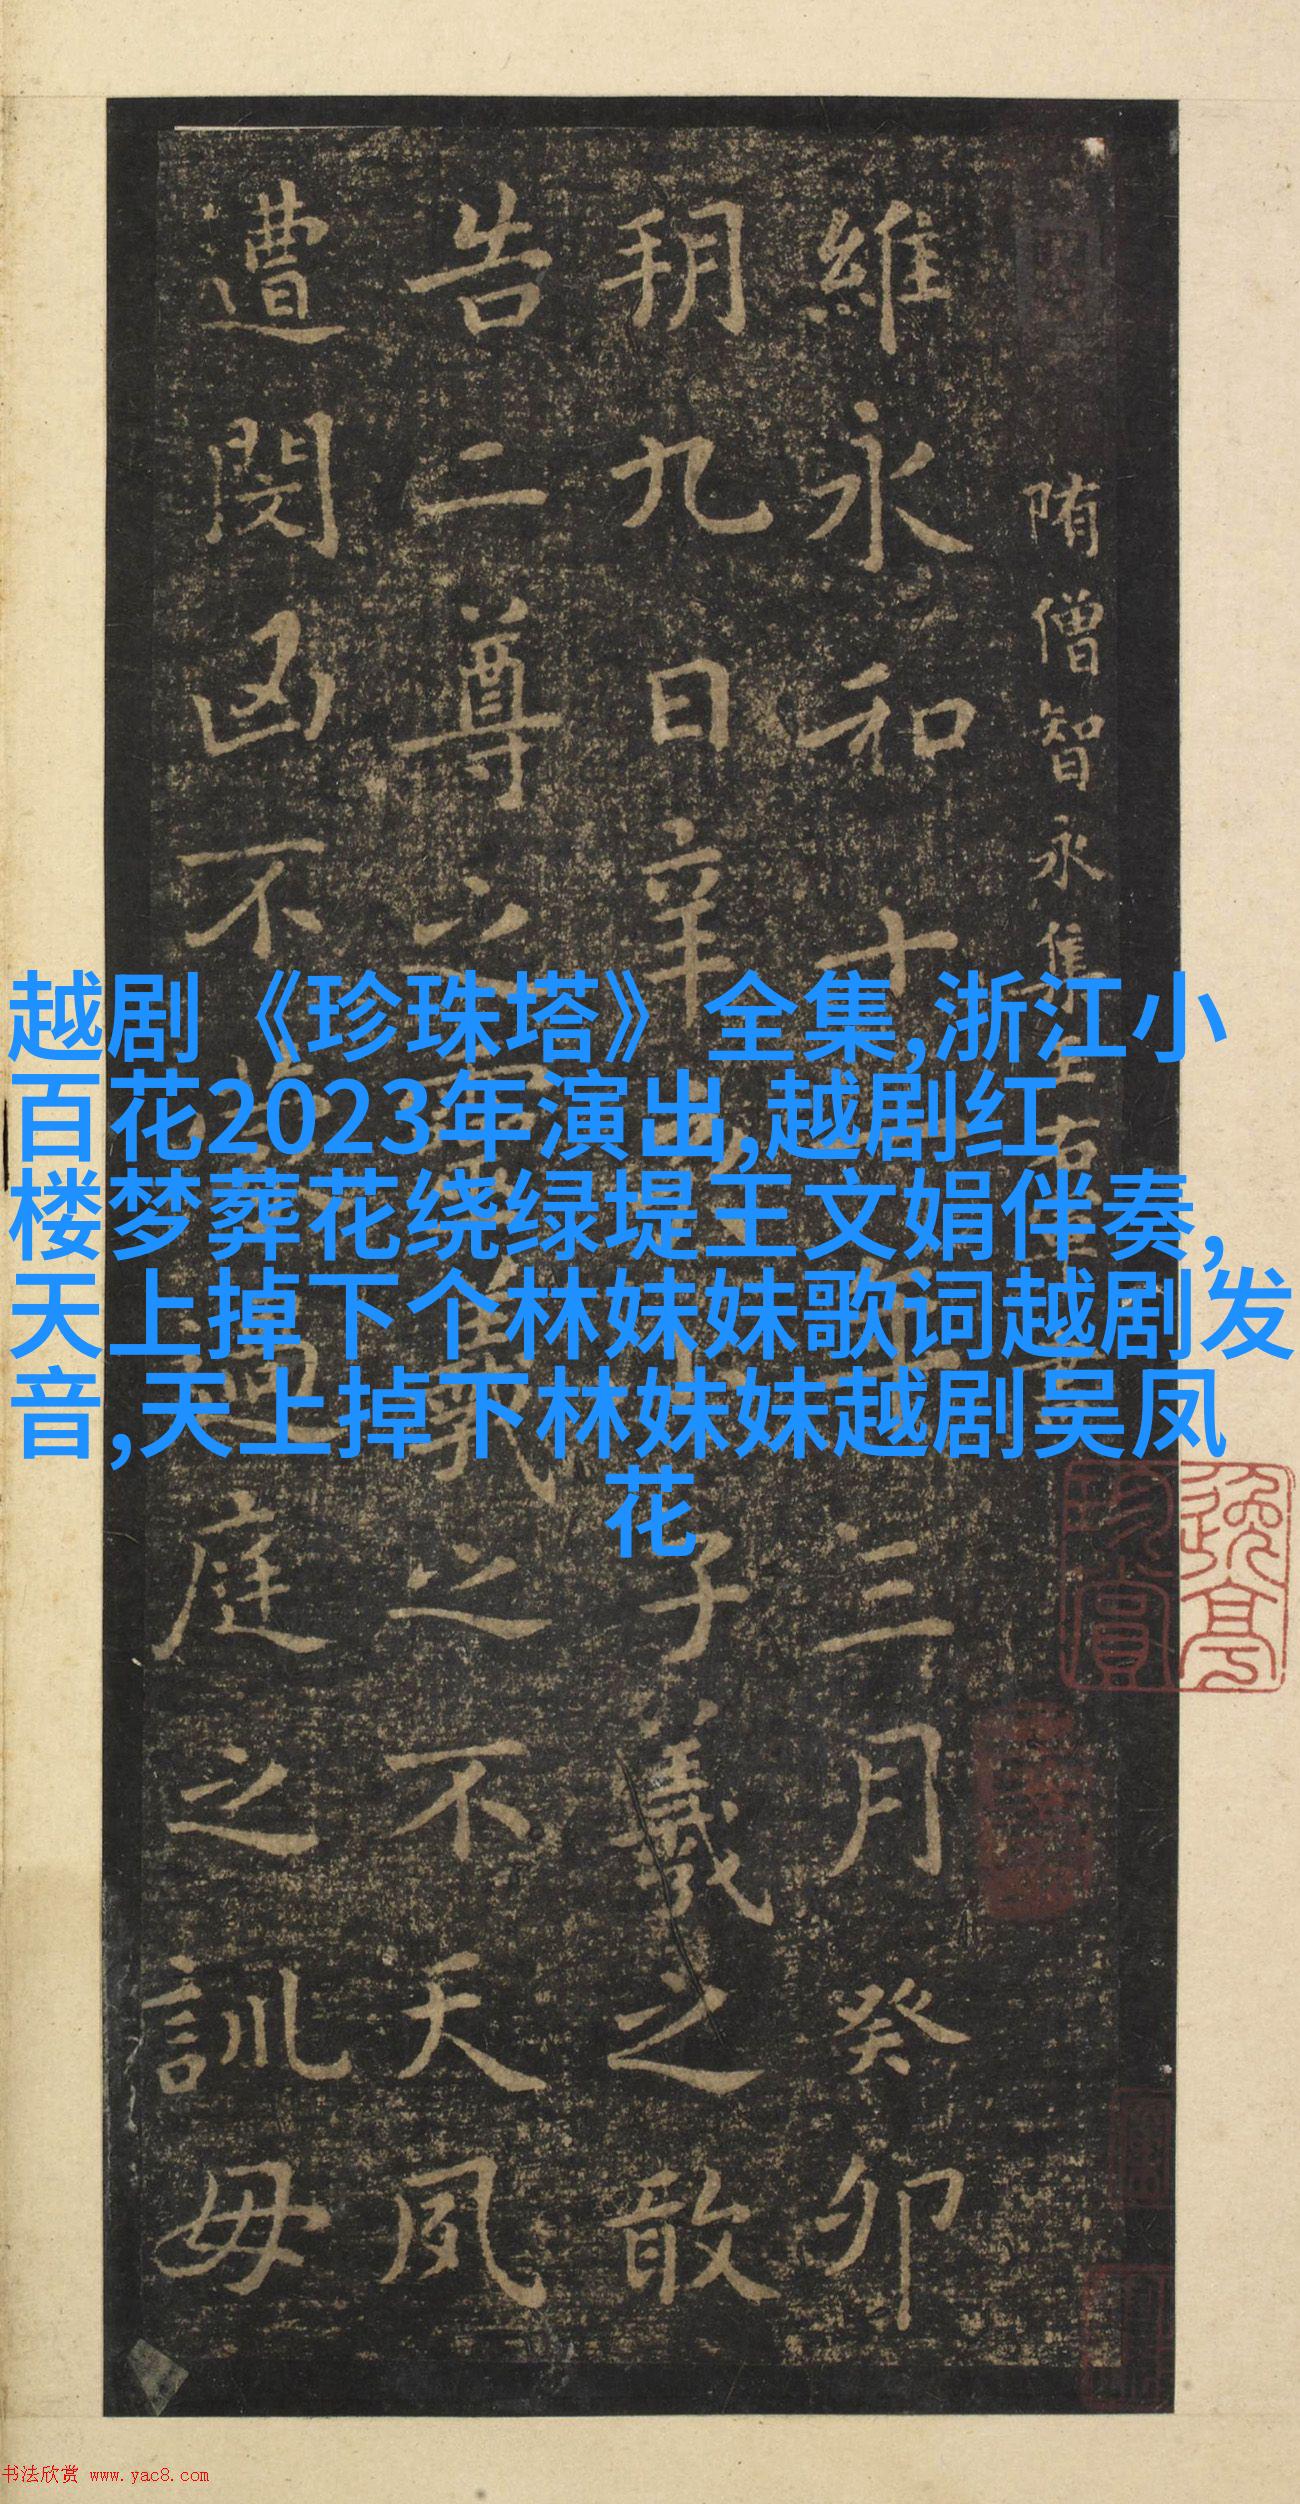 越剧《珍珠塔》全集,浙江小
百花2023年演出,越剧红
楼梦葬花绕绿堤王文娟伴奏,
天上掉下个林妹妹歌词越剧发
音,天上掉下林妹妹越剧吴凤
花
隋僧智永集王右
維永和十年三月癸卯
朔九日辛小子羲之敢
告二尊之靈羲之不天夙
遭閔凶不蒙過庭之訓毋
珍賞
書法欣赏 www.yac8.com